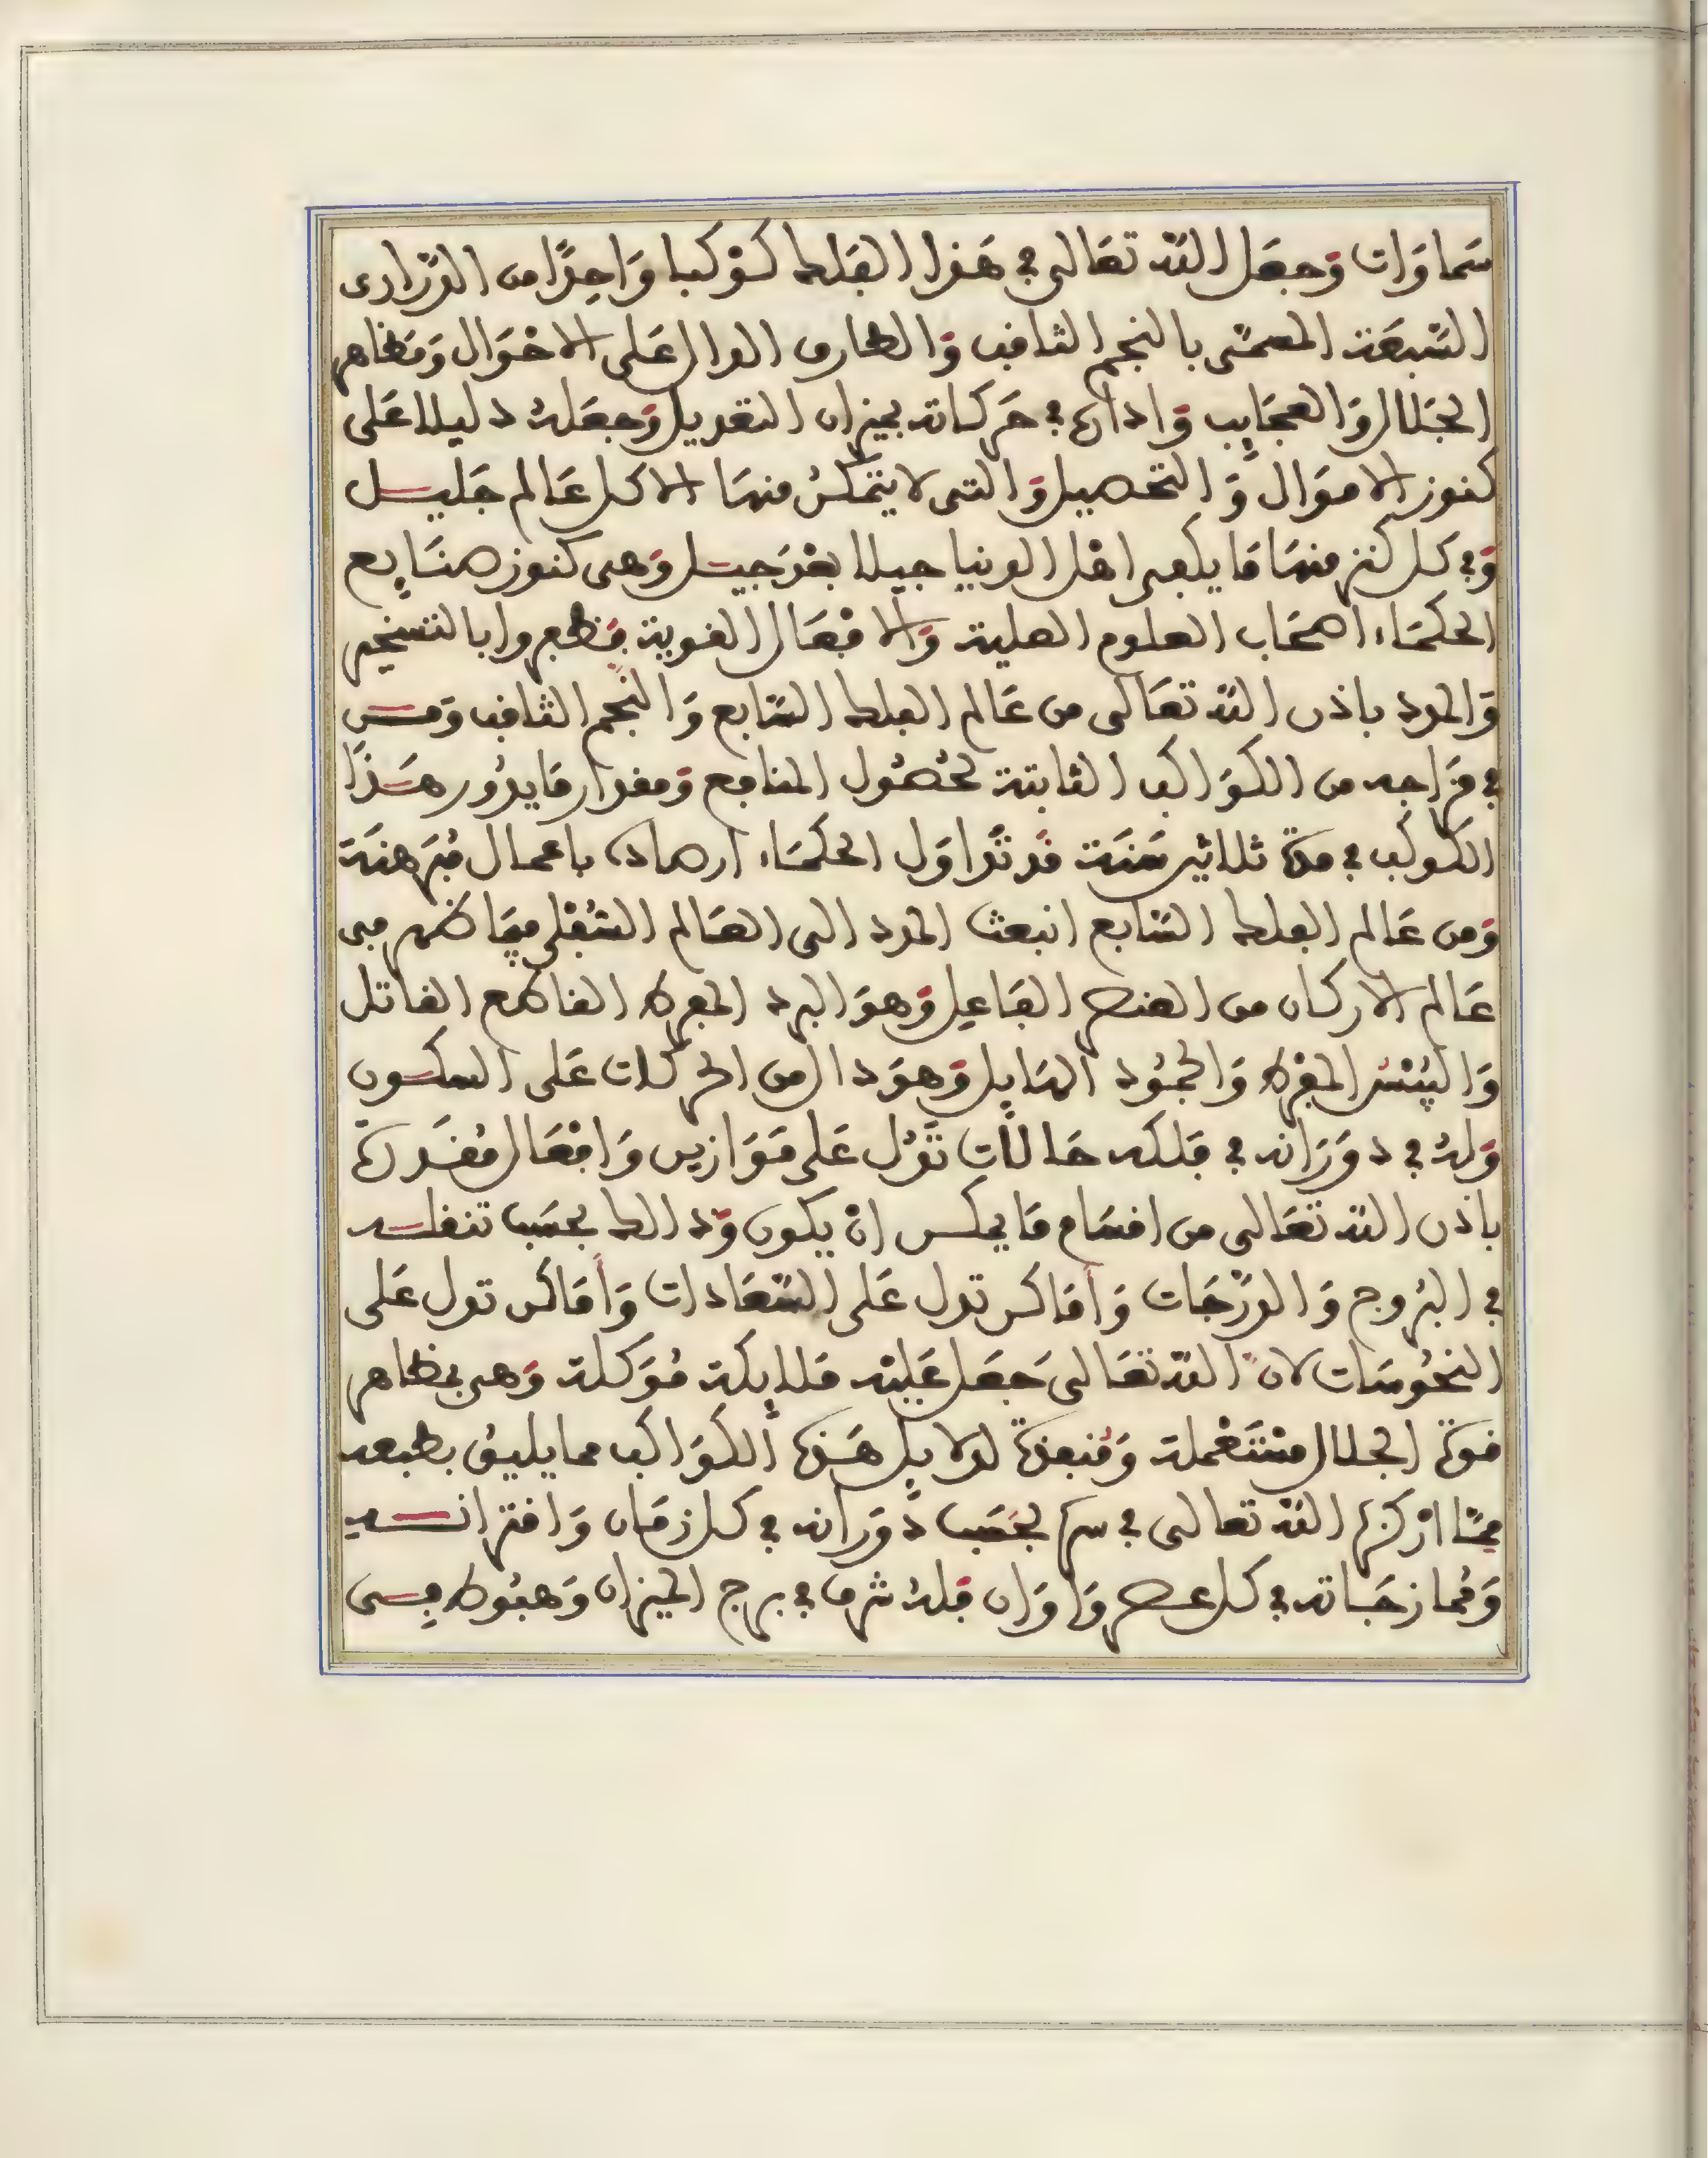 سَماوَات وَجعَل اللّه تعَالى في هَذا الفَلك كوْكبا وَاحِدًا من الدّرارى
السَّبعَة المسمَّى بالنجم الثاقب وَالطارق الدال عَلى الاحْوَال وَمَظاهر
الجَلال وَالعجَايب وَاداره في حَركاته بميزان التعديل وَجعَلهُ دليلا عَلى
كنوز الامْوَال وَالتحصيل وَالتى لا يتمَكنُ منهَا الا كل عَالم جَليل
وَفي كل كنز منهَا مَا يكفى اهْل الدنيا جيلا بعْدَ جيل وَهى كنوز صنَايع
الحكمَاء اصحَاب العلوم العلية وَالافْعَال القوية فظفروا بالتسخير
وَالمدد باذن اللّه تعَالى من عَالم الفلك السَّابع وَالنّجم الثاقب وَمن
في مزَاجه من الكوَاكب الثابتة لحُصُول المنافع وَمقدار مَا يدُور هَذا
الكوكب في مدة ثلاثين سَنَة قَد تدَاوَل الحكمَاء ارصاده باعمال مُبَرهنَة
وَمن عَالم الفلك السَّابع انبعث المدد الى العَالم السُّفْلى فيمَا ظهر في
عَالم الاركان من العنصر الفَاعِل وَهوَ البرد المفرط القاطع القاتل
وَاليُبْسُ المفْرط وَالجُمُود الهَايل وَهوَ دال من الحركات عَلى السكون
وَلهُ في دوَرَانه في فَلكه حَالات تدُل عَلى مَوَازين وَافْعَال مُقَدرة
باذن اللّه تعَالى من اقسَام مَا يمكن انْ يكون وَذالك بحسَب تنقله
في البُروج وَالدّرَجَات وَأمَاكن تدل عَلى السَّعَادات وَأمَاكن تدل عَلى
النحُوسَات لان اللّه تعَالى جَعَل عَليْه مَلايكة مُوَكلة وَهى بمظاهر
قوة الجلال مسْتَعْملة وَمُنبعثة لدلايل هَذه الكوَاكب مما يليق بطبعه
ممَّا ادْركها اللّه تعالى في سره بحَسَب دوَرانه في كل زمَان وَاقترانه
وَمُمازجَاته في كل عصر وَاوَان فَلهُ شرف في برج الميزان وَهبُوط في